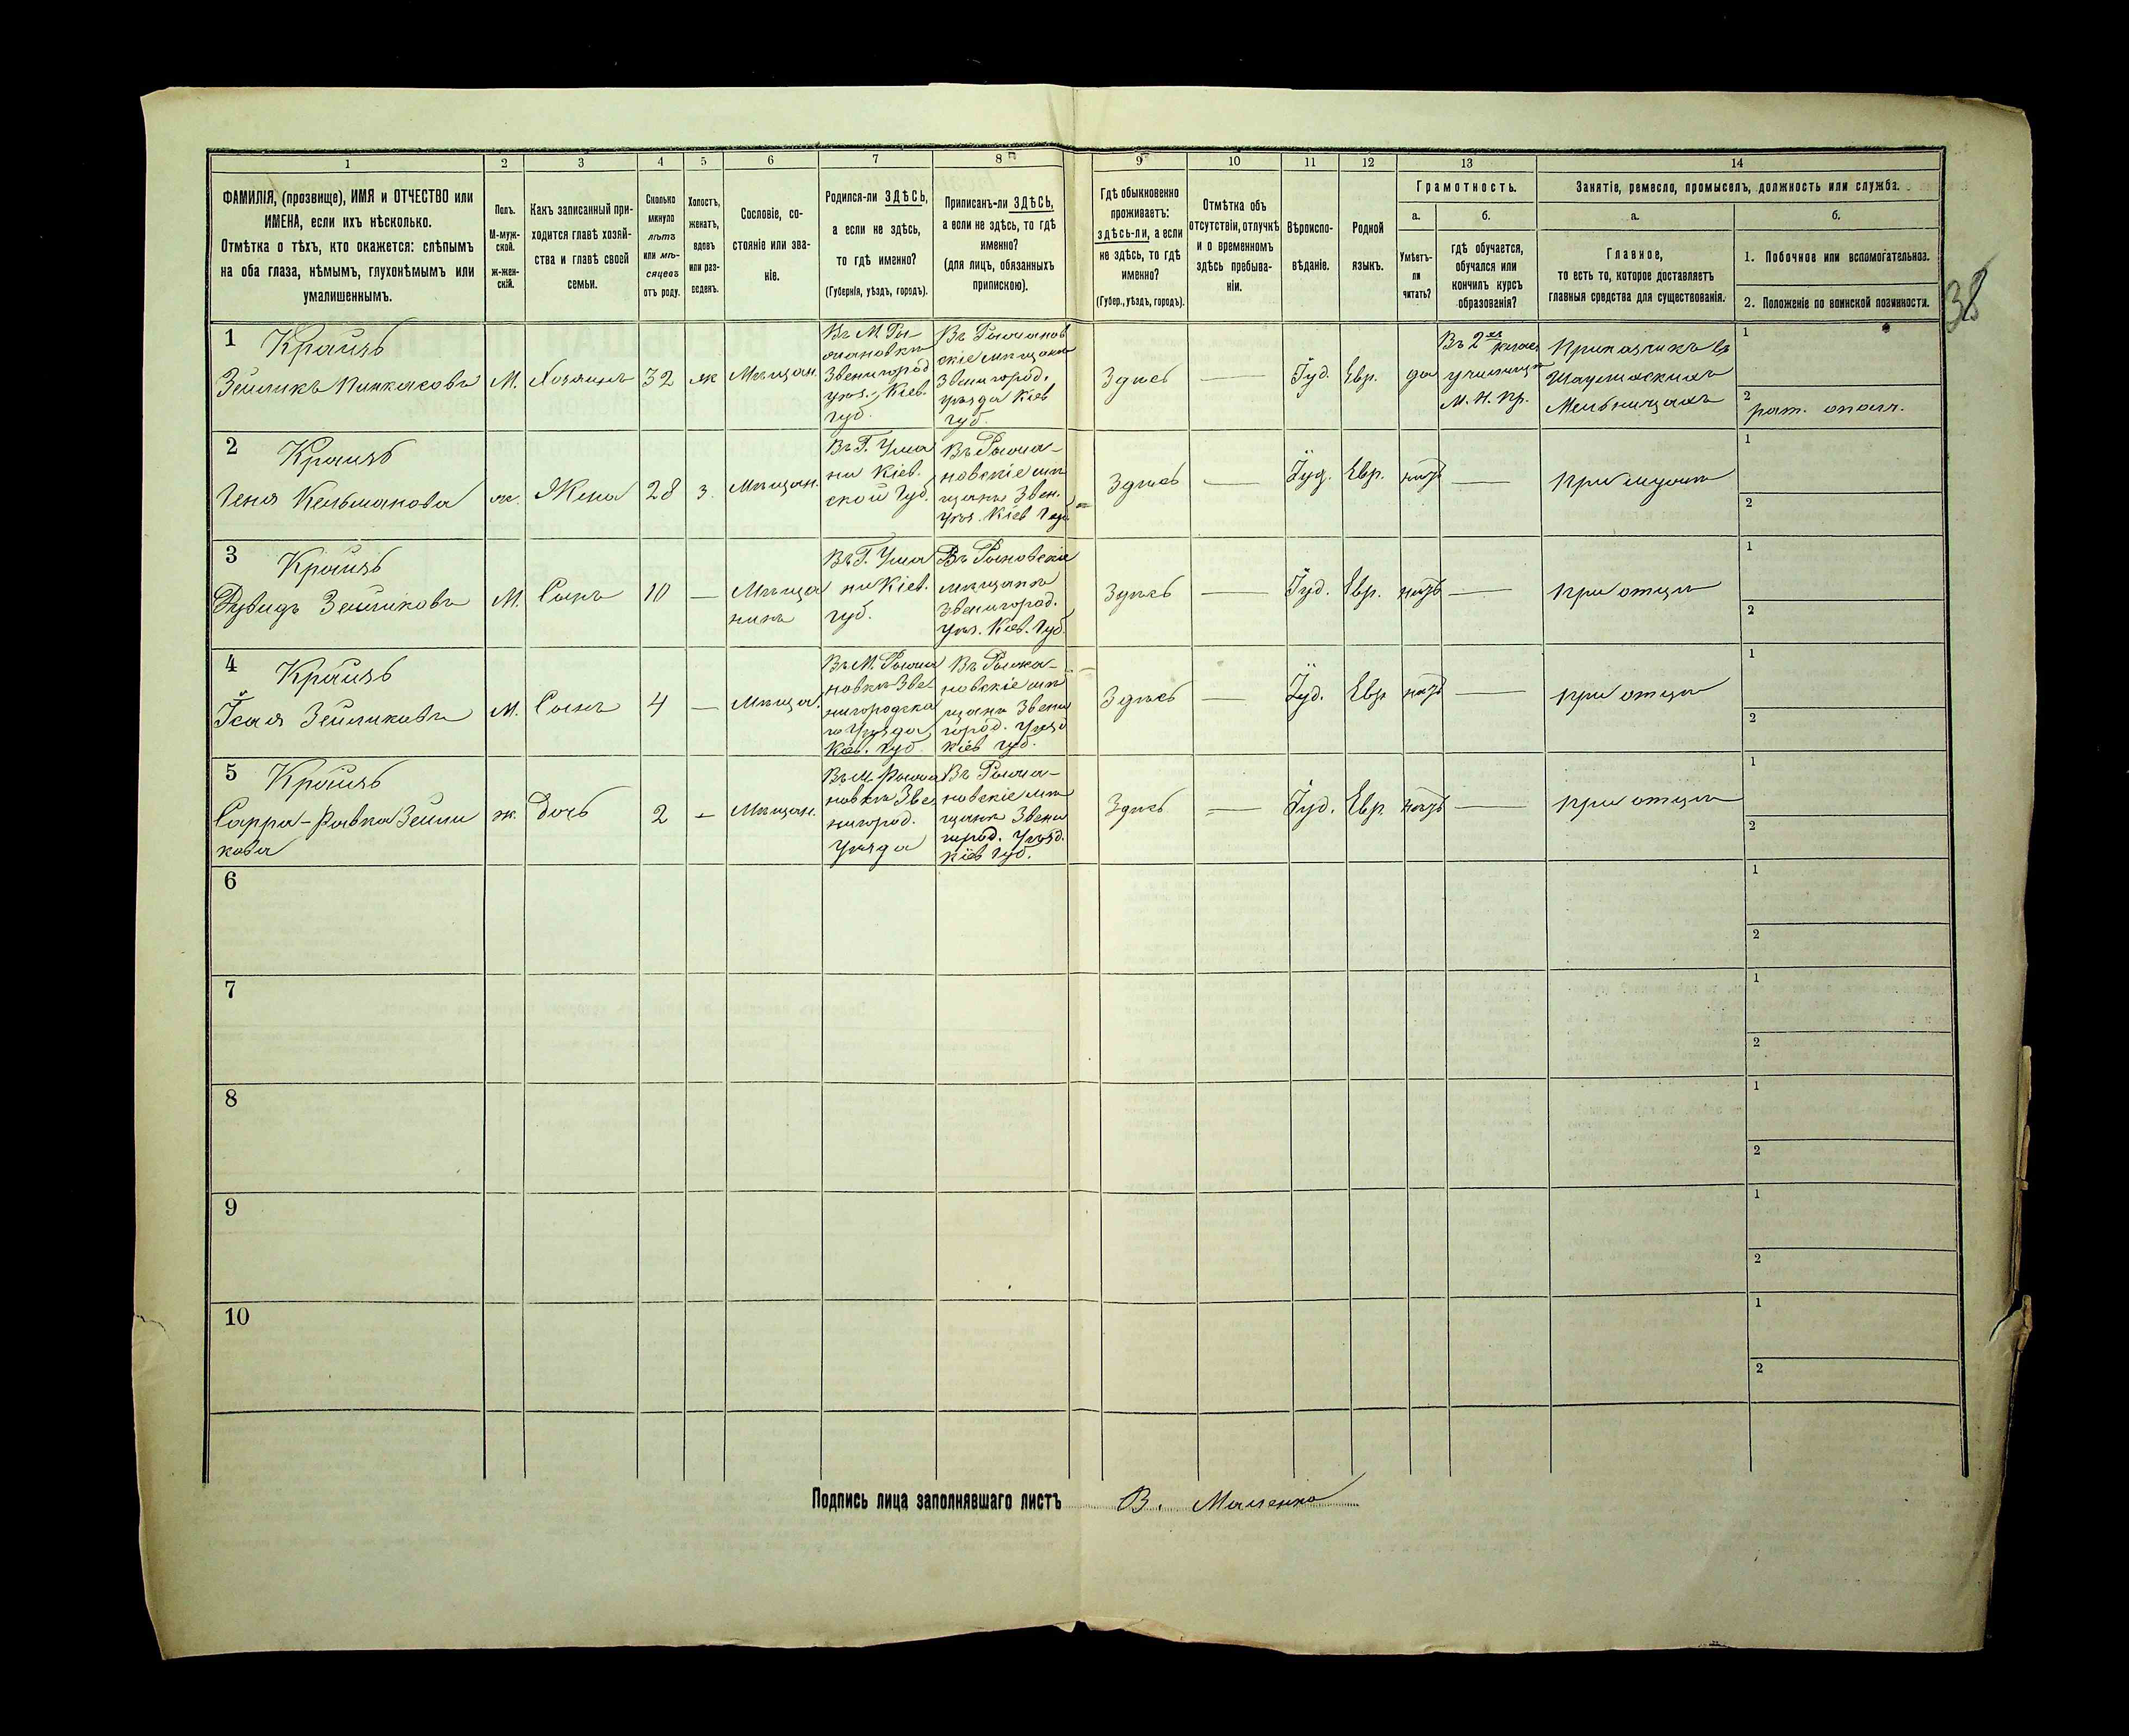 1
2
3
4
5
6
7
8
9
10
11
12
13
14
ФАМИЛІЯ, (прозвище), ИМЯ и ОТЧЕСТВО или
ИМЕНА, если ихъ нѣсколько.
Отмѣтка о тѣхъ, кто окажется: слѣпымъ
на оба глаза, нѣмымъ, глухонѣмымъ или
умалишеннымъ.
Полъ.
М-муж-
ской.
ж-жен-
скій.
Какъ записанный при-
ходится главѣ хозяй-
ства и главѣ своей
семьи.
Сколько
минуло
лѣтъ
или мѣ-
сяцевъ
отъ роду.
Холостъ,
женатъ,
вдовъ
или раз-
веденъ.
Сословіе, со-
стояніе или зва-
ніе.
Родился-ли ЗДѢСЬ,
а если не здѣсь,
то гдѣ именно?
(Губернія, уѣздъ, городъ).
Приписанъ-ли ЗДѢСЬ,
а если не здѣсь, то гдѣ
именно?
(для лицъ, обязанныхъ
припискою).
Гдѣ обыкновенно
проживаетъ:
здѣсь-ли, а если
не здѣсь, то гдѣ
именно?
(Губер., уѣздъ, городъ).
Отмѣтка объ
отсутствіи, отлучкѣ
и о временномъ
здѣсь пребыва-
ніи.
Вѣроиспо-
вѣданіе.
Родной
языкъ.
Грамотность.
а.
Умѣетъ-
ли
читать?
б.
гдѣ обучается,
обучался или
кончилъ курсъ
образованія?
Занятіе, ремесло, промыселъ, должность или служба.
а.
Главное,
то есть то, которое доставляетъ
главныя средства для существованія.
б.
1. Побочное или вспомогательное.
2. Положеніе по воинской повинности.
38
1
Крайзъ
Зейликъ Пинкасовъ
М.
Хозяинъ
32
ж
Мѣщан.
Въ М. Ры
жановкѣ
Звенигород
уѣз., Кіев.
губ.
Въ Рыжанов
скіе мѣщане
Звенигород.
уѣзда Кіев
губ.
Здѣсь
—
Іуд.
Евр.
да
Въ 2хъ клас
училищѣ
М. Н. Пр.
Приказчикъ въ
Мельницахъ
1
2
рат. ополч.
2
Крайзъ
Геня Кельманова
ж.
Жена
28
з.
Мѣщан.
Въ Г. Ума
ни Кіев.
ской Губ.
Въ Рыжа-
новскіе мѣ
щане Звен.
уѣз. Кіев Губ
Здѣсь
—
Іуд.
Евр.
нѣтъ
—
при мужѣ
1
2
3
Крайзъ
Дувидъ Зейликовъ
М.
Сынъ
10
—
Мѣща
нинъ
Въ Г. Ума
ни Кіев.
губ.
Въ Рыновскіе
мѣщане
Звенигород.
уѣз. Кіев. Губ.
Здѣсь
—
Іуд.
Евр.
нѣтъ
—
при отцѣ
1
2
4
Крайзъ
Исая Зейликовъ
М.
Сынъ
4
—
Мѣща.
Въ М. Рыжа
новкѣ Зве-
нигородска
го Уѣзда
Кіев. Губ.
Въ Рыжа-
новскіе мѣ
щане Звени
город. Уѣзд
Кіев губ.
Здѣсь
—
Іуд.
Евр
нѣтъ
—
при отцѣ
1
2
5
Крайзъ
Сарра-Рывка Зейли
кова
ж.
Дочь
2
—
Мѣщан.
Въ М. Рыжа
новкѣ Зве
нигород.
Уѣзда
Въ Рыжа-
новскіе мѣ
щане Звени
город. Уѣзд.
Кіев Губ.
Здѣсь
—
Іуд.
Евр.
нѣтъ
—
при отцѣ
1
2
6
1
2
7
1
2
8
1
2
9
1
2
10
1
2
Подпись лица заполнявшаго листъ
В. Маменко